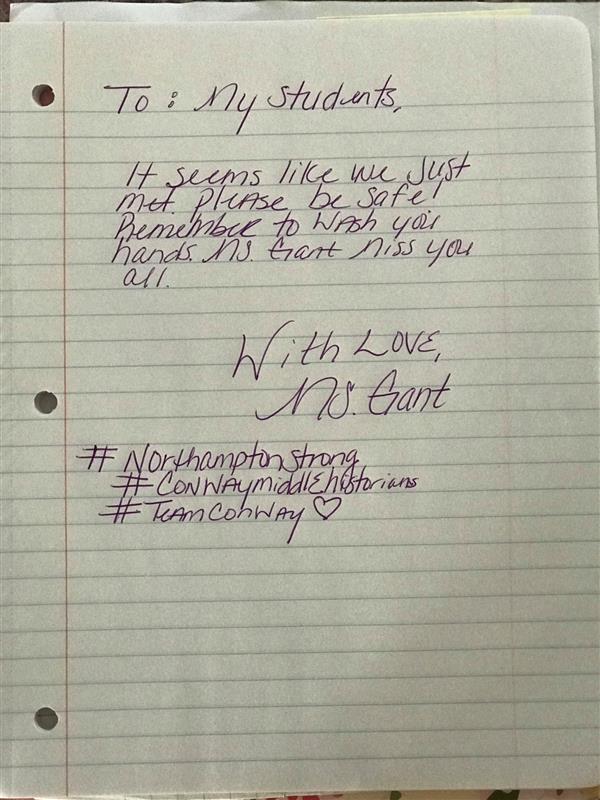 To: My Students,
It seems like we just
met. Please be safe!
Remember to wash your
hands. Ms. Gant miss you
all.
With Love,
Ms. Gant
#NorthamptonStrong
#Conwaymiddlehistorians
#TeamConway♡